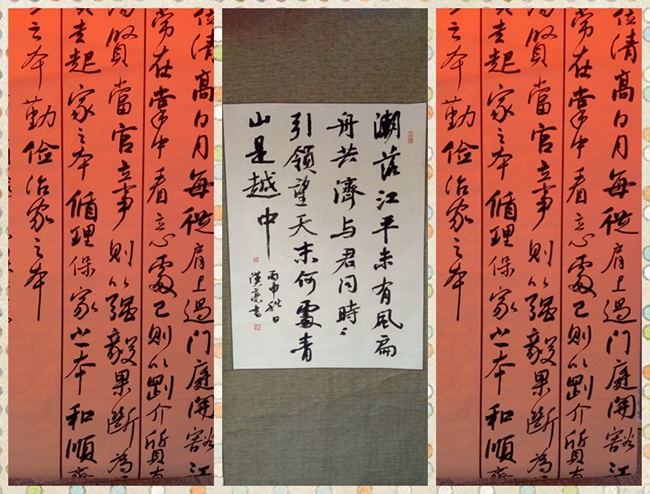 位清高日月每從肩上過门庭開豁江
常在掌中看立志處己則以剛介質直
為賢當官立事則以強毅果斷為
書起家之本循理保家之本和順齊
之本勤儉治家之本
潮落江平未有風扁
舟共濟与君同時々
引領望天末何處青
山是越中
丙申秋日
漢亮書
位清高日月每從肩上過门庭開豁江
常在掌中看立志處己則以剛介質直
為賢當官立事則以強毅果斷為
書起家之本循理保家之本和順齊
之本勤儉治家之本